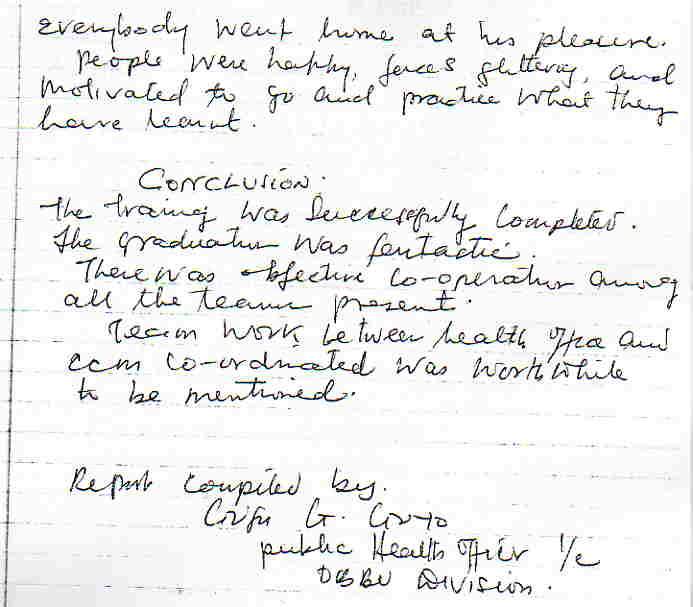 everybody went home at his pleasure.
People were happy, faces glittering, and
motivated to go and practice what they
have learnt.
Conclusion.
The training was successfully completed.
The graduation was fantastic.
There was effective co-operation among
all the team present.
Team work between health office and
ccm co-ordinated was worthwhile
to be mentioned.
Report compiled by.
G.
public Health officer I/c
Division.